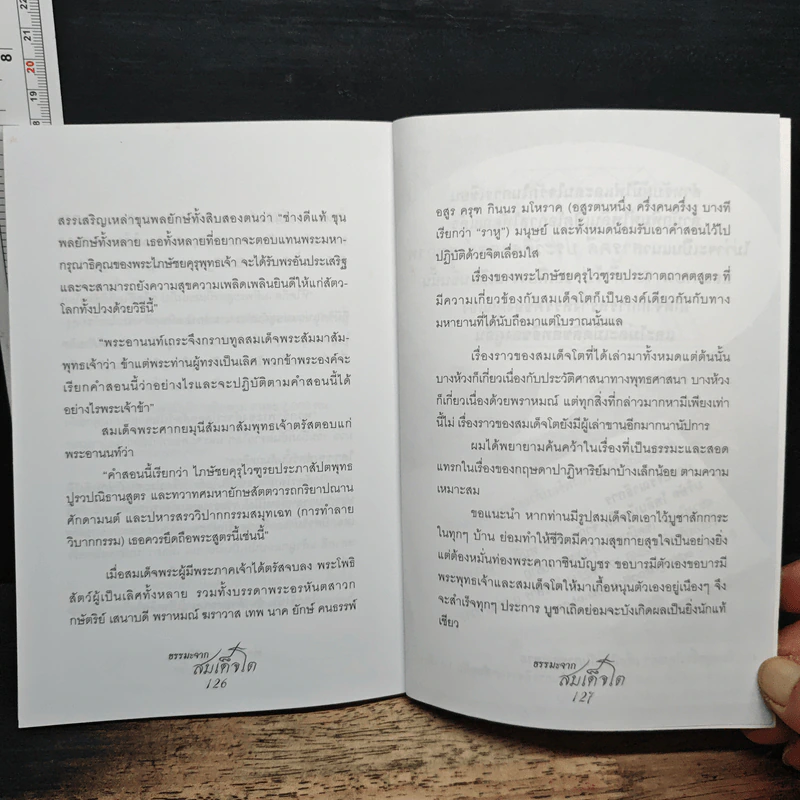 สรรเสริญเหล่าขุนพลยักษ์ทั้งสิบสองตนว่า "ช่างดีแท้ ขุน
พลยักษ์ทั้งหลาย เธอทั้งหลายที่อยากจะตอบแทนพระมหา-
กรุณาธิคุณของพระไภษัชยคุรุพุทธเจ้า จะได้รับพรอันประเสริฐ
และจะสามารถยังความสุขความเพลิดเพลินยินดีให้แก่สัตว-
โลกทั้งปวงด้วยวิธีนี้"
"พระอานนท์เถระจึงกราบทูลสมเด็จพระสัมมาสัม-
พุทธเจ้าว่า ข้าแต่พระท่านผู้ทรงเป็นเลิศ พวกข้าพระองค์จะ
เรียกคำสอนนี้ว่าอย่างไรและจะปฏิบัติตามคำสอนนี้ได้
อย่างไรพระเจ้าข้า"
สมเด็จพระศากยมุนีสัมมาสัมพุทธเจ้าตรัสตอบแก่
พระอานนท์ว่า
"คำสอนนี้เรียกว่า ไภษัชยคุรุไวฑูรยประภาสัปตพุทธ
ปูรวปณิธานสูตร และทวาทศมหายักษ์สัตตวารถกริยาปณาน
ศักดามนต์ และปหารสรววิปากกรรมสมุทเฉท (การทำลาย
วิบากกรรม) เธอควรยึดถือพระสูตรนี้เช่นนี้"
เมื่อสมเด็จพระผู้มีพระภาคเจ้าได้ตรัสจบลง พระโพธิ
สัตว์ผู้เป็นเลิศทั้งหลาย รวมทั้งบรรดาพระอรหันตสาวก
กษัตริย์ เสนาบดี พราหมณ์ ฆราวาส เทพ นาค ยักษ์ คนธรรพ์
ธรรมะจาก
สมเด็จโต
126
อสูร ครุฑ กินนร มโหราค (อสูรตนหนึ่ง ครึ่งคนครึ่งงู บางที
เรียกว่า "ราหู") มนุษย์ และทั้งหมดน้อมรับเอาคำสอนไว้ไป
ปฏิบัติด้วยจิตเลื่อมใส
เรื่องของพระไภษัชยคุรุไวฑูรยประภาตถาคตสูตร ที่
มีความเกี่ยวข้องกับสมเด็จโตก็เป็นองค์เดียวกันกับทาง
มหายานที่ได้นับถือมาแต่โบราณนั้นแล
เรื่องราวของสมเด็จโตที่ได้เล่ามาทั้งหมดแต่ต้นนั้น
บางห้วงก็เกี่ยวเนื่องกับประวัติศาสนาทางพุทธศาสนา บางห้วง
ก็เกี่ยวเนื่องด้วยพราหมณ์ แต่ทุกสิ่งที่กล่าวมากหามีเพียงเท่า
นี้ไม่ เรื่องราวของสมเด็จโตยังมีผู้เล่าขานอีกมากนานัปการ
ผมได้พยายามค้นคว้าในเรื่องที่เป็นธรรมะและสอด
แทรกในเรื่องของกฤษดาปาฏิหาริย์มาบ้างเล็กน้อย ตามความ
เหมาะสม
ขอแนะนำ หากท่านมีรูปสมเด็จโตเอาไว้บูชาสักการะ
ในทุกๆ บ้าน ย่อมทำให้ชีวิตมีความสุขกายสุขใจเป็นอย่างยิ่ง
แต่ต้องหมั่นท่องพระคาถาชินบัญชร ขอบารมีตัวเองขอบารมี
พระพุทธเจ้าและสมเด็จโตให้มาเกื้อหนุนตัวเองอยู่เนืองๆ จึง
จะสำเร็จทุกๆ ประการ บูชาเถิดย่อมจะบังเกิดผลเป็นยิ่งนักแท้
เชียว
ธรรมะจาก
สมเด็จโต
127
8
22
21
20
19